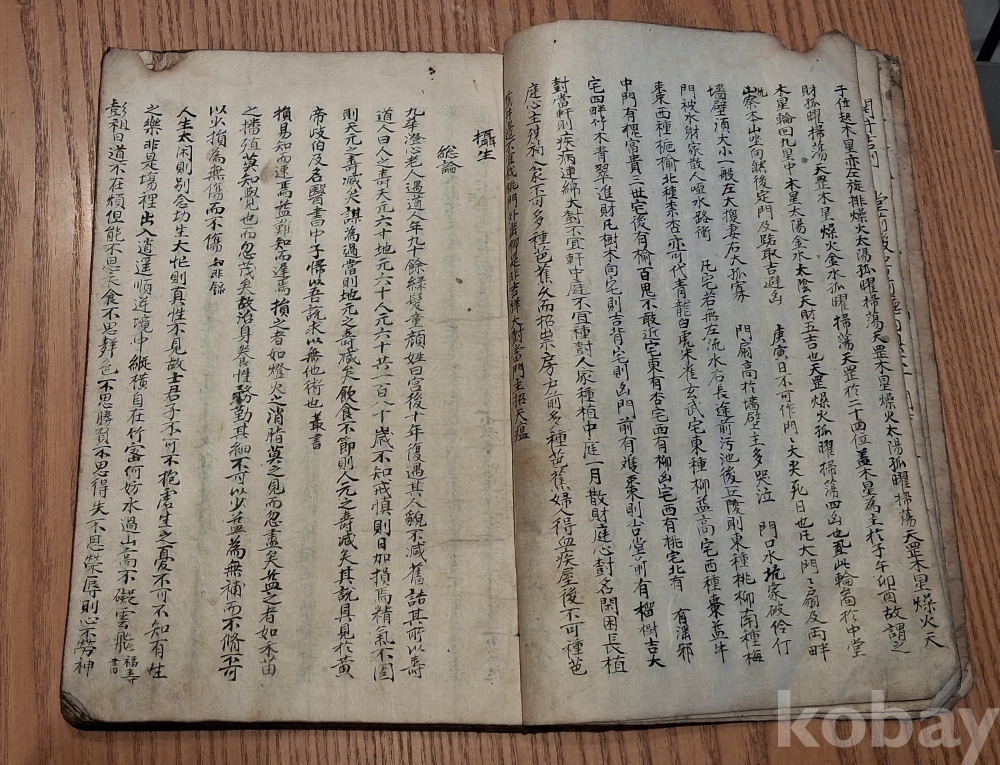 子位起木星亦左旋排燥火太陽孤曜掃蕩天罡木星燥火太陽孤曜掃蕩天罡木星燥火天
財孤曜掃蕩天罡木星燥火金水孤曜掃蕩天罡於二十四位蓋木星為主於子午卯酉故謂之
木星輪回九星中木星太陽金水太陰天財五吉也天罡燥火孤曜掃蕩四凶也 此輪啚於中堂
本山坐向然後定門及路取吉避凶 庚寅日不可作門々大夫死日也凡大門々扇及両畔
墻壁須大小一般左大換妻右大孤寡 門扇高於墻壁主多哭泣 門口水坑家破伶仃
門被水財家散人啞水路衝 凡宅若無左流水右長途前污池後丘陵則東種桃柳南種梅
棗西種梔榆北種柰杏亦可代青龍白虎朱雀玄武宅東種柳益高宅西種棗益牛
中門有槐富貴三世宅後有榆百鬼不敢近宅東有杏宅西有柳凶宅西有桃宅北有 淫邪
宅四畔竹木青翠進財凡樹木向宅則吉背宅則凶門前有 棗則吉堂前有榴樹吉大
尌當軒則疾病連綿大尌不宜軒中庭不宜種尌人家種植中庭一月散財庭心尌名閑困長植
庭心主殃禍人家不可多種芭蕉久而招祟房戶前多種芭蕉婦人得血疾屋後不可種芭
攝生
総論
九華澄心老人遇道人年九十餘綠髮童顏姓曰宮後十年復遇其人貌不減舊詰其所以壽
道人曰人之壽天元六十地元六十人元六十共一百八十歲不知戒慎則日加損焉精氣不固
則天元之壽減矣謀為過當則地元之壽減矣飲食不節則人元之壽減矣其說具見於黃
帝歧伯及名醫書中子歸以吾說求以無他術也叢書
損易知而速焉益難知而遲焉損之者如燈火之消脂莫之見而忽盡矣益之者如禾苗
之播殖莫知覺也而忽茂矣故治身養性務勤其細不可以少益為無補而不脩不可
以少損為無傷而不傷 知非錄
人生太閑則別念竊生太忙則真性不見故士君子不可不抱虛生之憂不可不知有生
之樂非是場裡出入逍遥順逆境中縱橫自在竹密何妨水過山高不礙雲飛 福壽書
彭祖曰道不在煩但能不思衣食不思聲色不思勝負不思得失不思榮辱則心不勞神